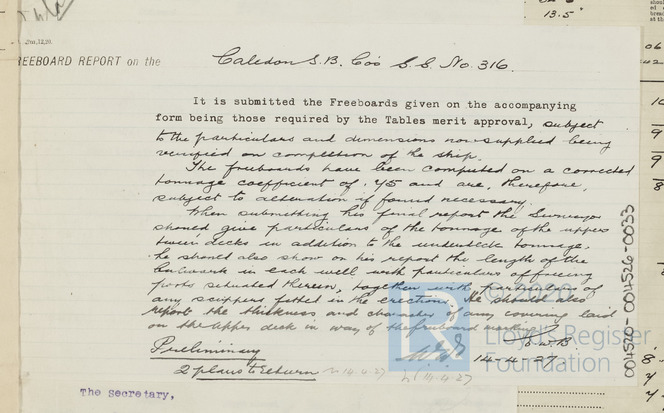 13.5"
FREEBOARD REPORT on the
Caledon S.B. Co's S.S. No. 316.
It is submitted the Freeboards given on the accompanying
form being those required by the Tables merit approval, subject
to the particulars and dimensions now supplied being
verified on completion of the ship.
The freeboards have been computed on a corrected
tonnage coefficient of .75 and are, therefore,
subject to alteration if found necessary.
When submitting his final report the Surveyor
should give particulars of the tonnage of the upper
tween decks in addition to the underdeck tonnage.
He should also show on his report the length of the
bulwark in each well with particulars of freeing
ports situated therein, together with particulars of
any scuppers fitted in the erections. He should also
report the thickness and character of any covering laid
on the upper deck in way of the freeboard marking.
Preliminary
14-4-27
2 plans to return
14.4.27
14.4.27
The Secretary,
© 2020
Lloyd's Register
Foundation
004520-004526-0033